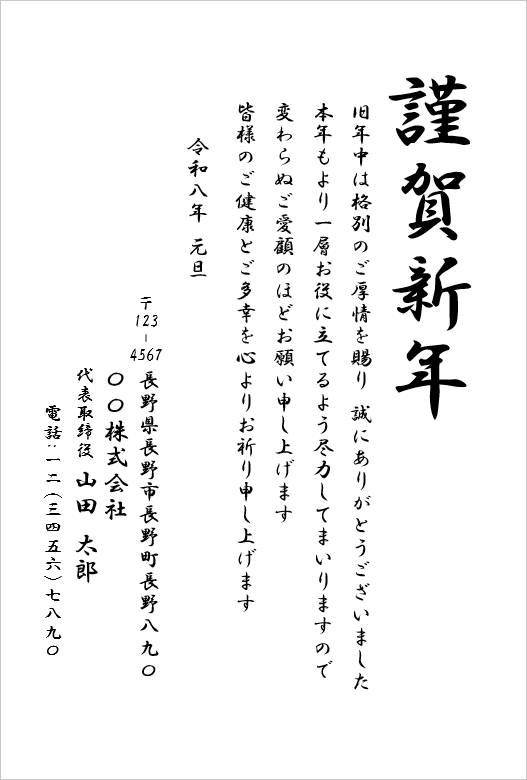 謹賀新年
旧年中は格別のご厚情を賜り 誠にありがとうございました
本年もより一層お役に立てるよう尽力してまいりますので
変わらぬご愛顧のほどお願い申し上げます
皆様のご健康とご多幸を心よりお祈り申し上げます
令和八年 元旦
〒123-4567 長野県長野市長野町長野八九〇
〇〇株式会社
代表取締役 山田 太郎
電話:一二(三四五六)七八九〇